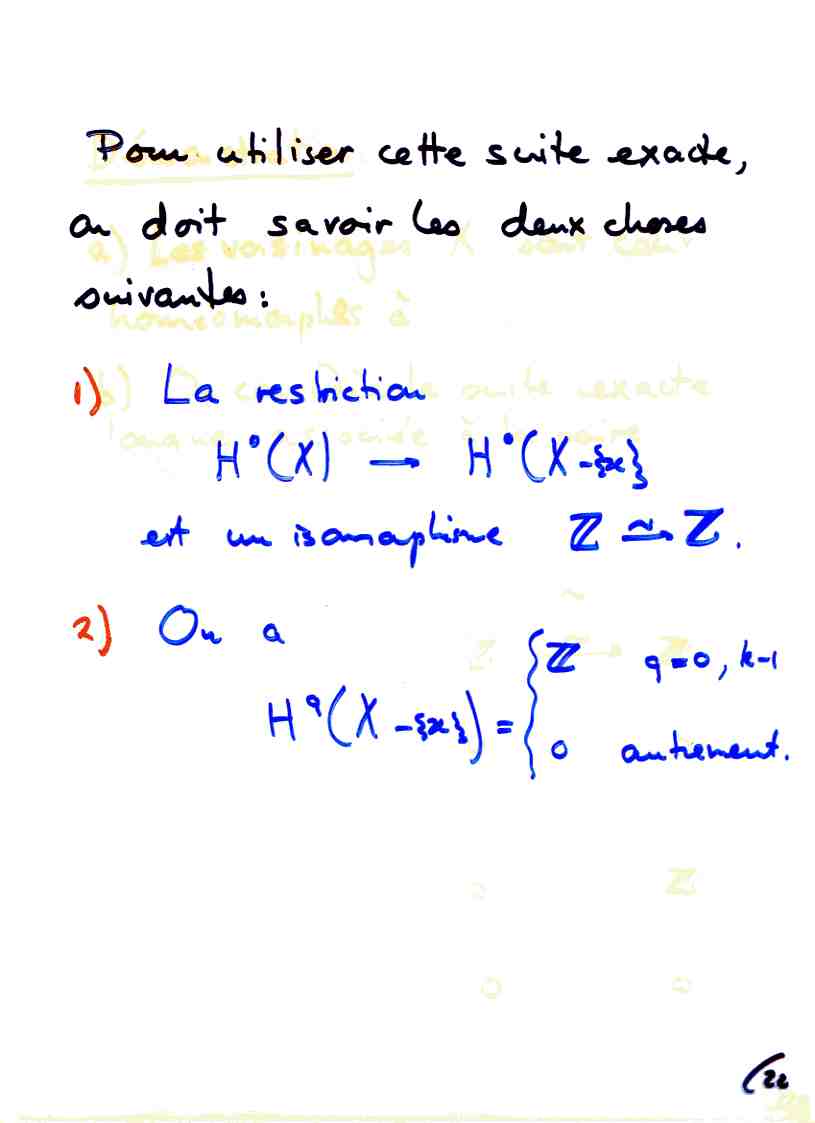 Pour utiliser cette suite exacte,
on doit savoir les deux choses
suivantes:
1) La restriction
H⁰(X) → H⁰(X-{x}
est un isomorphisme ℤ ⥲ ℤ.
2) On a
H^q(X-{x}) = { ℤ q=0, k-1
0 autrement.
22